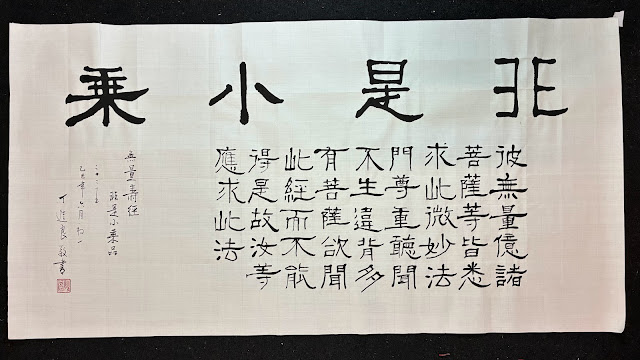 非是小乘
彼無量億諸
菩薩等皆悉
求此微妙法
門尊重聽聞
不生違背多
有菩薩欲聞
此經而不能
得是故汝等
應求此法
無量壽經
非是小乘品
乙巳年六月初一
丁進良敬書